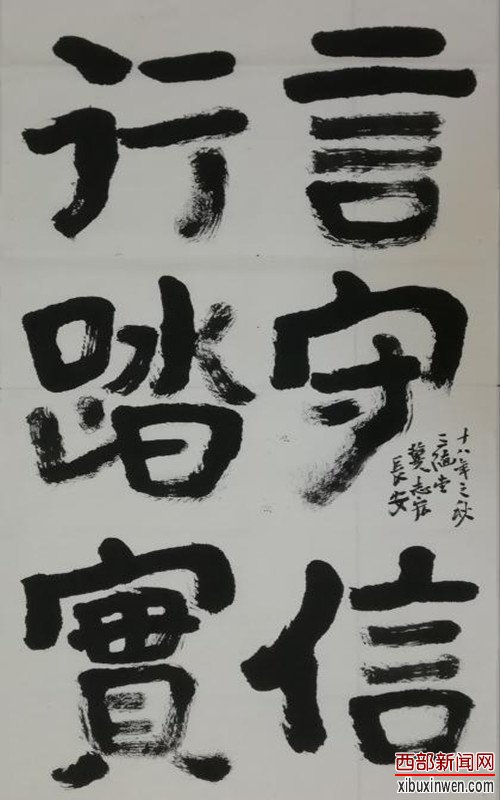 言守信
行踏實
十八年之秋
長安
西部新闻网
xibuxinwen.com